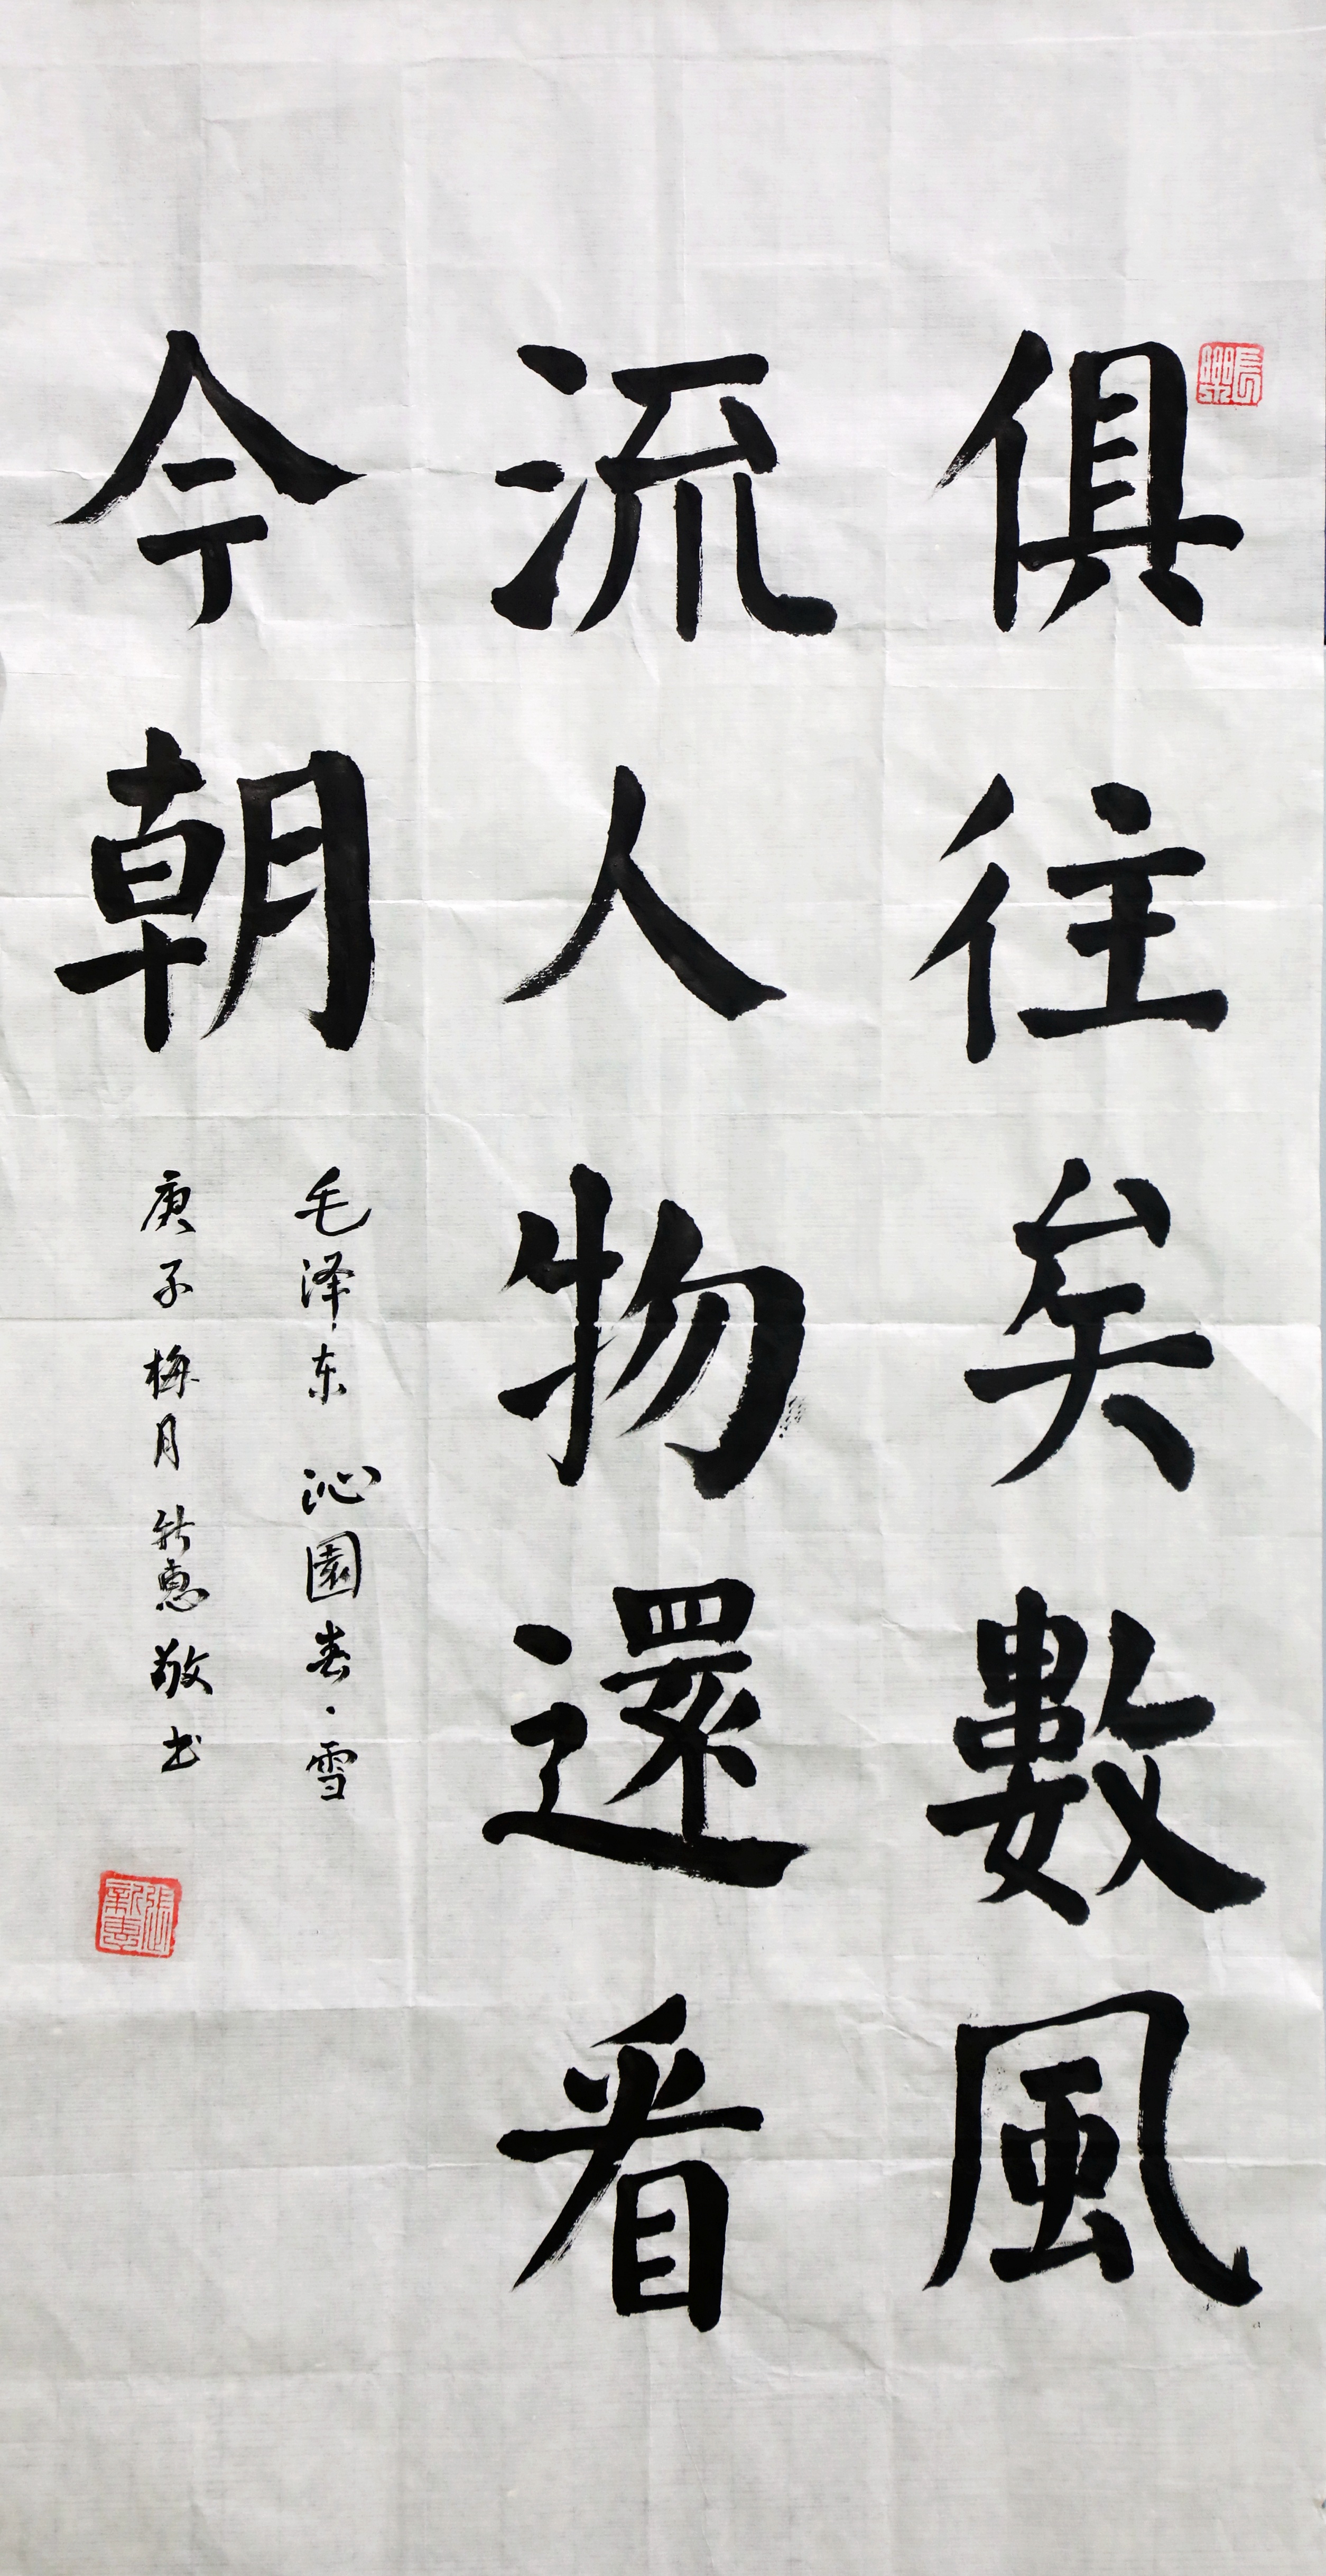 俱往矣數風
流人物還看
今朝
毛泽东 沁園春·雪
庚子梅月新惠敬书
長樂
張新惠